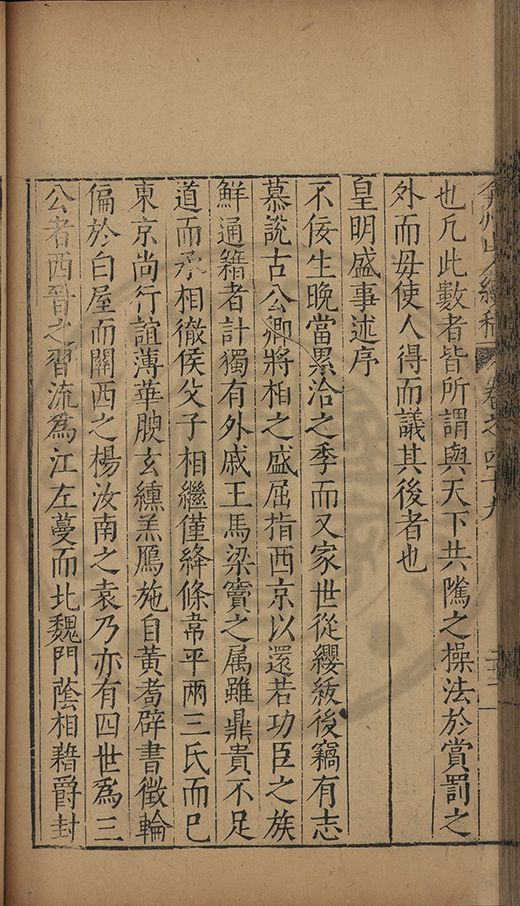 弇州山人續稿 卷之四十九
也凡此數者皆所謂與天下共隲之操法於賞罰之
外而毋使人得而議其後者也
皇明盛事述序
不佞生晚當累洽之季而又家世從纓紱後竊有志
慕說古公卿將相之盛屈指西京以還若功臣之族
鮮通籍者計獨有外戚王馬梁竇之属雖鼎貴不足
道而丞相徹侯父子相繼僅絳條韋平兩三氏而已
東京尚行誼薄華腴玄纁羔鴈施自黃耇辟書徵輪
偏於白屋而關西之楊汝南之袁乃亦有四世爲三
公者西晉之習流爲江左蔓而北魏門蔭相藉爵封